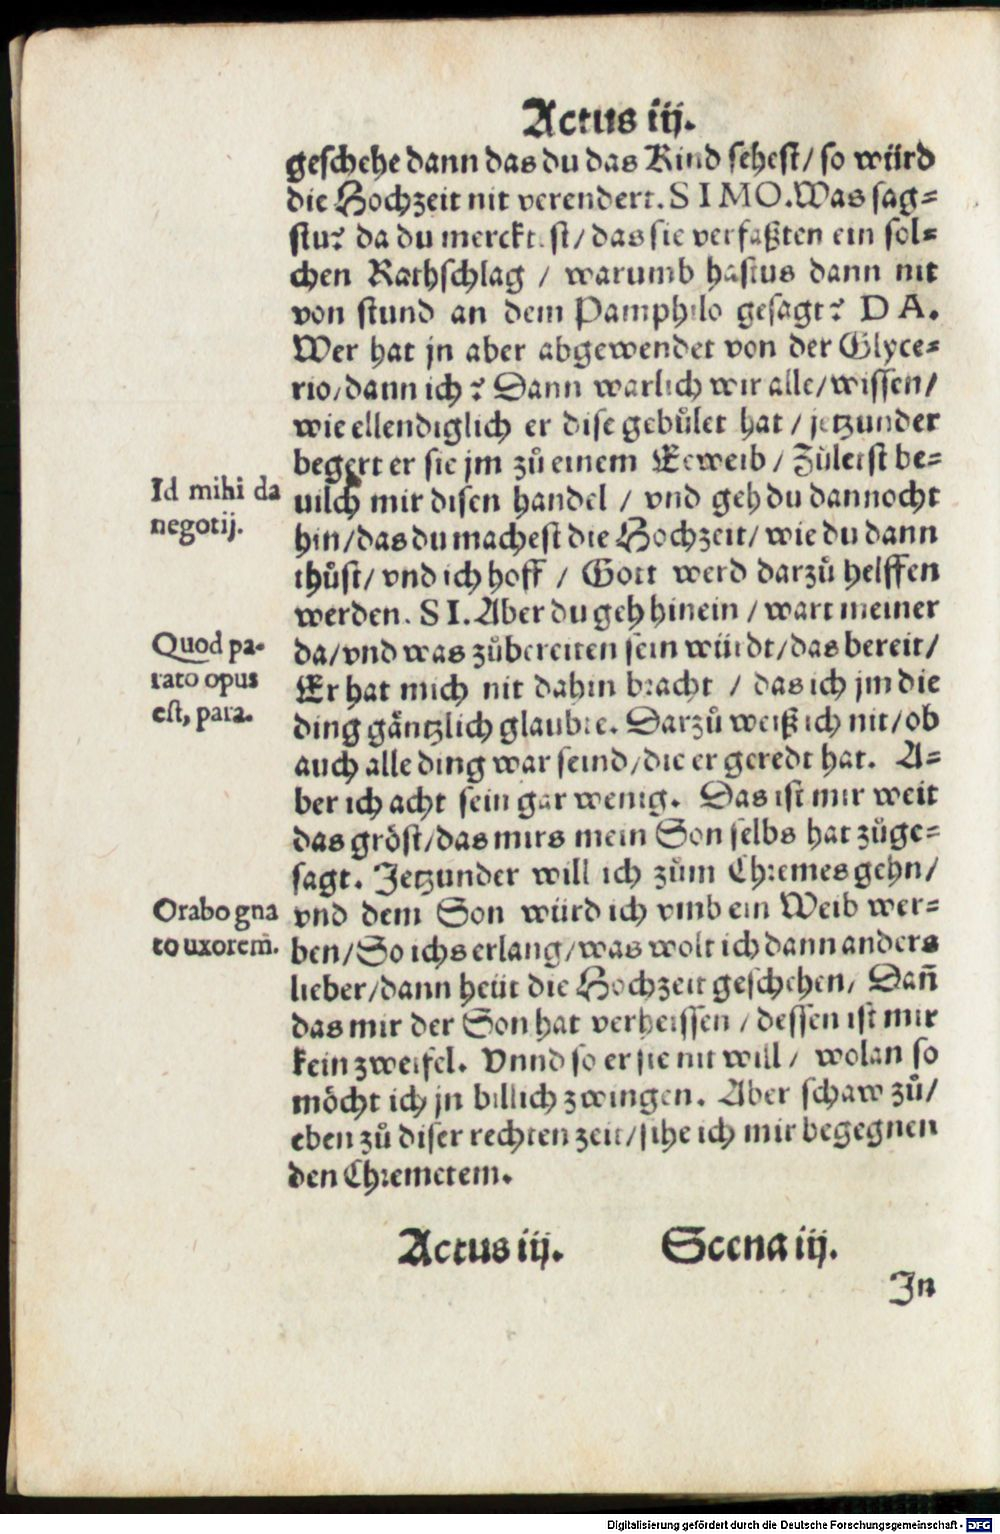 Actus iij.
geschehe dann das du das Kind sehest/ so würd
die Hochzeit nit verendert. SIMO. Was sag=
stu? da du mercktest/ das sie verfaßten ein sol=
chen Rathschlag / warumb hastus dann nit
von stund an dem Pamphilo gesagt? DA.
Wer hat jn aber abgewendet von der Glyce=
rio/dann ich? Dann warlich wir alle/wissen/
wie ellendiglich er dise gebůlet hat / jetzunder
begert er sie jm zů einem Eeweib / Zůletst be=
uilch mir disen handel / vnd geh du dannocht
hin/das du machest die Hochzeit/ wie du dann
thůst/ vnd ich hoff / Gott werd darzů helffen
werden. SI. Aber du geh hinein / wart meiner
da/vnd was zůbereiten sein würdt/das bereit/
Er hat mich nit dahin bracht / das ich jm die
ding gäntzlich glaubte. Darzů weiß ich nit/ob
auch alle ding war seind/die er geredt hat. A=
ber ich acht sein gar wenig. Das ist mir weit
das gröst/das mirs mein Son selbs hat zůge=
sagt. Jetzunder will ich zům Chremes gehn/
vnd dem Son würd ich vmb ein Weib wer=
ben/So ichs erlang/was wolt ich dann anders
lieber/dann heüt die Hochzeit geschehen/ Dañ
das mir der Son hat verheissen / dessen ist mir
kein zweifel. Vnnd so er sie nit will / wolan so
möcht ich jn billich zwingen. Aber schaw zů/
eben zů diser rechten zeit/sihe ich mir begegnen
den Chremetem.
Id mihi da
negotij.
Quod pa-
rato opus
est, para.
Orabo gna
to uxorem̃.
Actus iij. Scena iij.
In
Digitalisierung gefördert durch die Deutsche Forschungsgemeinschaft - DFG